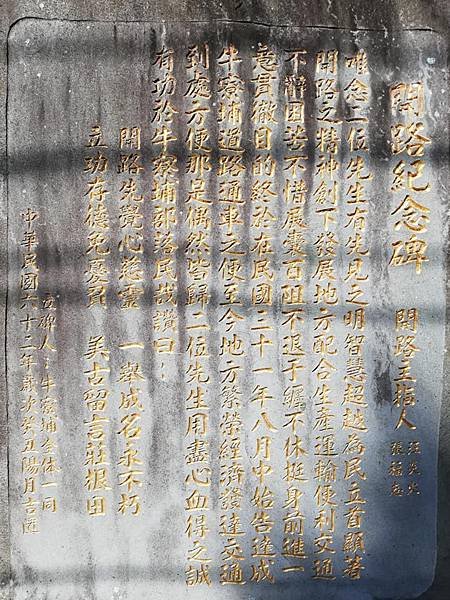 開路紀念碑 開路主指人 汪炎火
張
唯念一位先生有先見之明智慧超越為民立首顯著
開路之精神創下發展地方配合生產運輸便利交通
不辭困苦不惜展囊百阻不退手癘不休挺身前進一
意貫徹目的終於在民國三十一年八月中始告達成
牛寮埔道路通車之便至今地方繁榮經濟發達交通
到處方便那是偶然皆歸二位先生用盡心血得之誠
有功於牛寮埔部落民哉讚曰：
開路先覺心慈靈 一舉成名永不朽
立功存德免憂員 美古留言壯根由
立碑人：牛寮埔全体一同
中華民國六十三年歲次癸丑陽月吉置